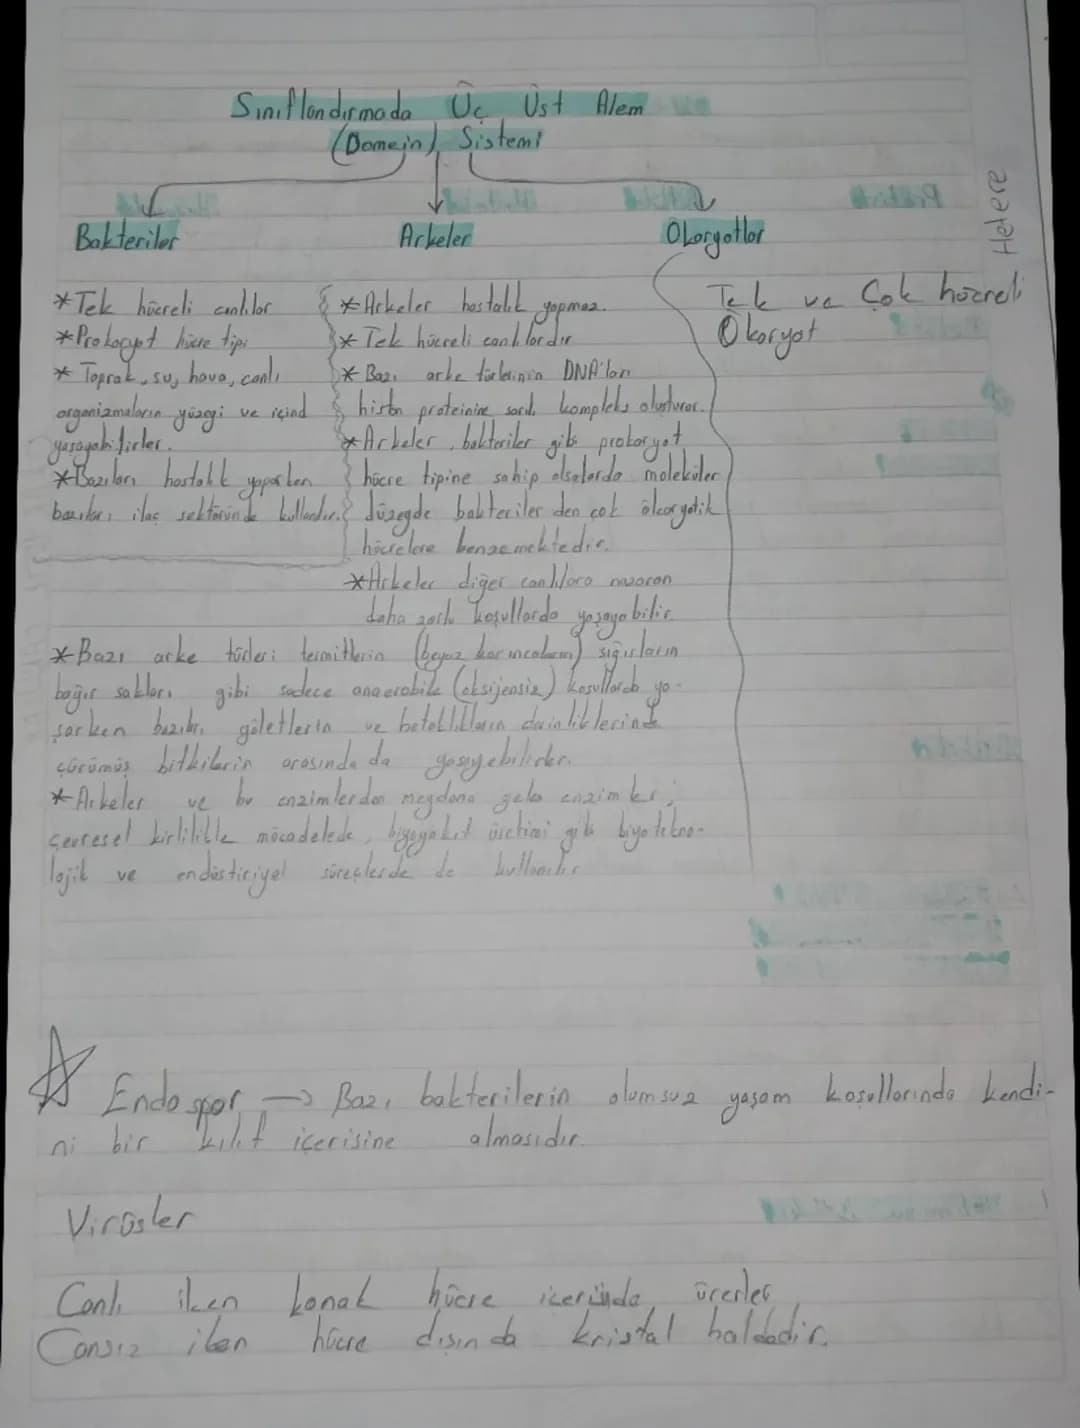 Sınıflandırmada Üç Üst Alem
(Domejn) Sistemi
Bakteriler
Arkeler
Ökoryotlar
Hetere
*Tek hücreli canlılar
*Prokoryot hücre tipi
* Toprak, su, hava, canlı
organizmaların yüzeyi ve içind
yaşayabilirler.
*Bazıları hastalık yaparken
bazıları ilaç sektöründe kullanılır.
*Arkeler hastalık yapmaz.
* Tek hücreli canlılardır
* Bazı arke türlerinin DNA'ları
histon proteinine sarılı kompleks oluşturur.
*Arkeler, bakteriler gibi prokoryot
hücre tipine sahip olsalarda moleküler
düzeyde bakteriler den çok ökoryotik
hücrelere benzemektedir.
*Arkeler diğer canlılara nazaran
daha zorlu koşullarda yaşayabilir.
Tek ve Çok hücreli
Ökoryot
*Bazı arke türleri termitlerin (beyaz karıncaların) sığırların
bağır sakları gibi sadece anaerobik (oksijensiz) koşullarda ya-
şarken bazıları göletlerin ve bataklıkların derinliklerinde
çürümüş bitkilerin arasında da yaşayabilirler.
*Arkeler ve bu enzimlerden meydana gelen enzimler;
çevresel kirlilikle mücadelede, biyoyakıt üretimi gibi biyotekno-
lojik ve endüstiriyel süreçlerde de kullanılır
Endospor → Bazı bakterilerin olumsuz yaşam koşullarında kendi-
ni bir kılıf içerisine almasıdır.
Virüsler
Canlı iken konak hücre içeriinde ürerler
Cansız iken hücre dışında kristal haldedir.